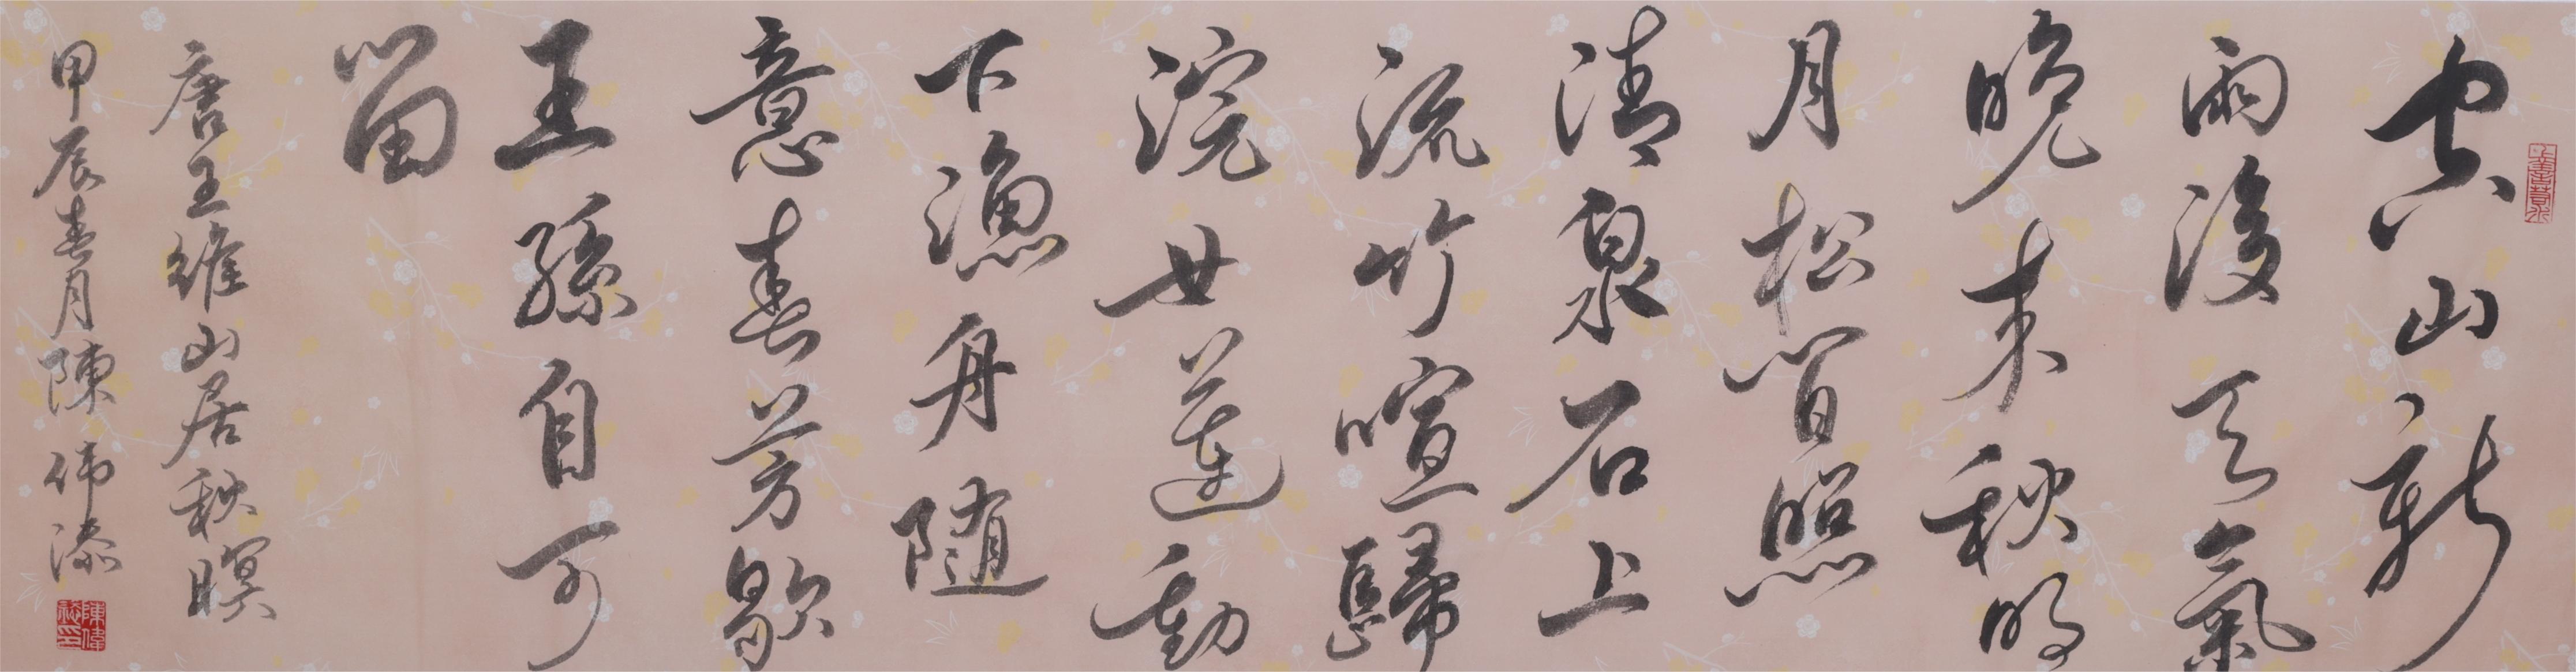 上善若水
空山新
雨後天氣
晚来秋明
月松間照
清泉石上
流竹喧歸
浣女蓮動
下漁舟随
意春芳歇
王孫自可
留
唐王維山居秋暝
甲辰春月陳伟添
陳偉添印